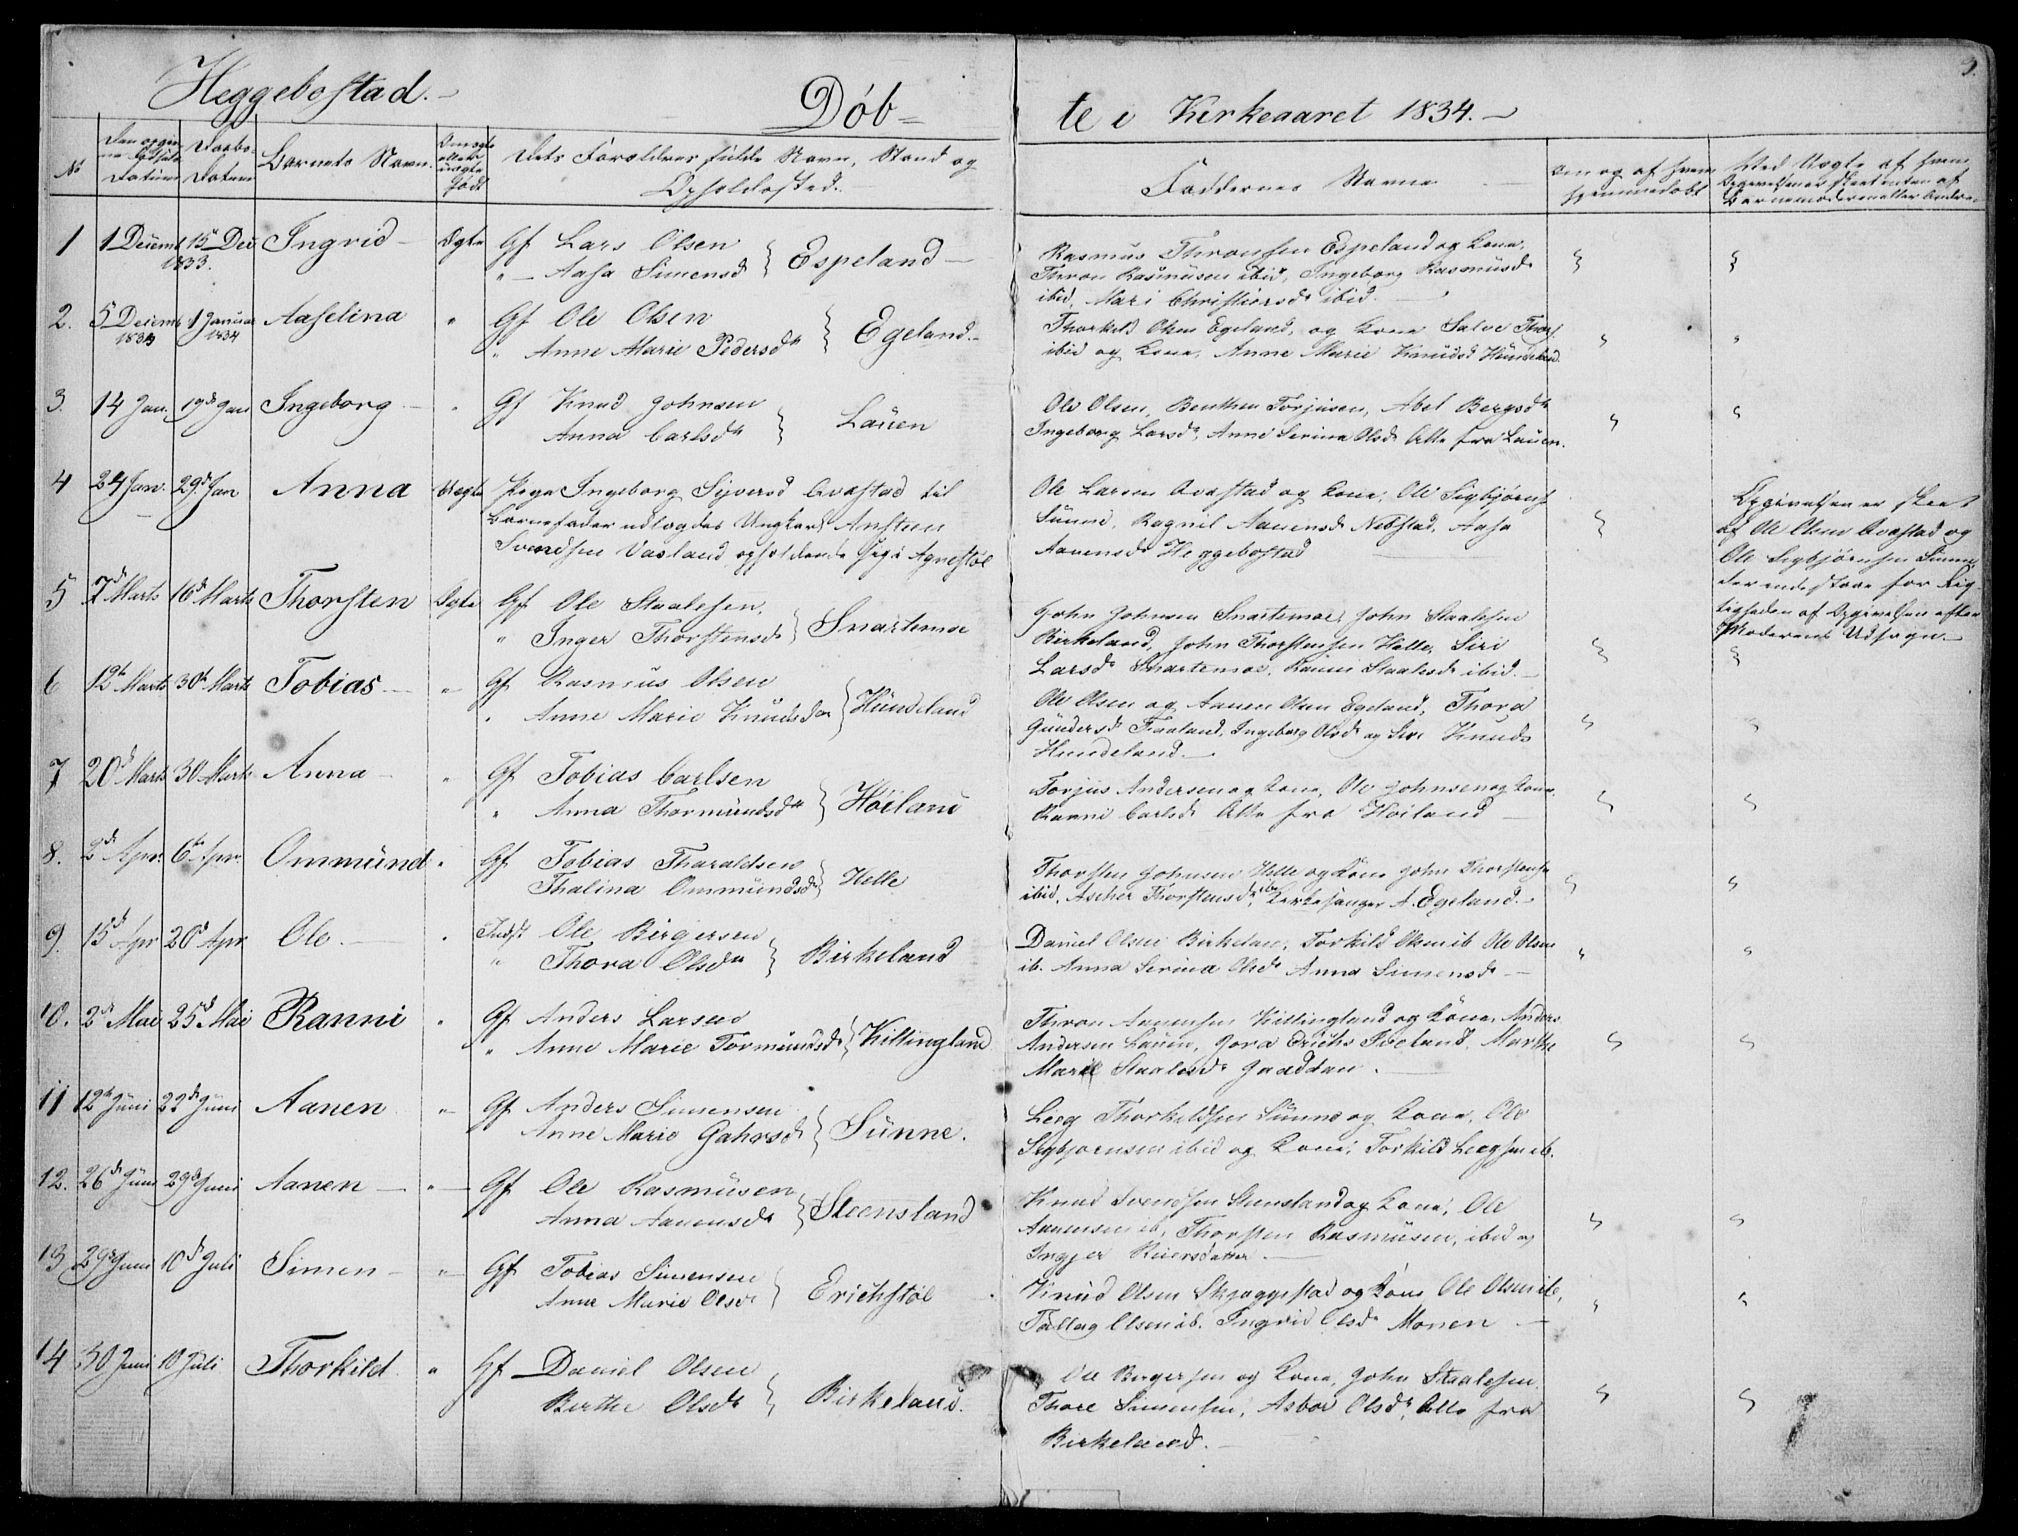 3.
Heggebostad.
Døb=
te i Kirkeaaret 1834.
No
Daabs-
Datum
Barnets Navn.
Dets Forældres fulde Navn, Stand og
Opholdssted.
Faddernes Navne
1 1 Decemb 15 Dec Ingrid Ægte Gf Lars Olsen
1833. " Aasa Simensd } Espeland
Rasmus Thronsen Espeland og Kone,
Thron Rasmusen ibid, Ingeborg Rasmusd
ibid, Mari Christiansd ibid.
2. 5 Decemb 1 Januar Aaselina " Gf Ole Olsen
1834 " Anne Marie Pedersdr } Egeland.
Thorkild Olsen Egeland, og Kone Salve
ibid og Kone, Anne Marie Knudsd Hundeland
3. 14 Jan. 19de Jan Ingeborg " Gf Knud Johnsen
Anna Carlsdr } Lauen
Ole Olsen, Benthen Torjusen, Abel Bergsdr
Ingeborg Larsdr, Anne Serina Olsdr Alle fra Lauen.
4 24 Jan. 29d Jan Anna Uægte Pige Ingeborg Syversd Qvastad til
Barnefader udlagdes Ungkarl Ansteen
Svendsen opholdende sig i Agnestøl
Ole Larsen Qvastad og Kone, Ole Sigbjørns
Sunne, Ragnil Aanensd Nebstad, Aasa
Aanensd Heggebostad
Opgivelsen er skeet
af Ole Olsen Qvastad og
Ole Sigbjørnsen Sunne
der indestaae for Rig-
tigheden af Opgivelsen efter
Moderens Udsagn.
5 7d Marts 16d Marts Thorsten Ægte Gf Ole Staalesen,
" Inger Thorstensd } Snartemoe
John Johnsen Snartemoe, John Staalesen
Birkeland, John Thorstensen Helle, Siri
Larsdr Snartemoe, Ranni Staalesd ibid.
6 12te Marts 30d Marts Tobias " Gf Rasmus Olsen
" Anne Marie Knudsdr } Hundeland
Ole Olsen og Aanen Olsen Egeland, Thora
Gundersd Faaland, Ingeborg Olsd og Siri Knuds
Hundeland.
7 20d Marts 30 Marts Anna " Gf Tobias Carlsen
" Anna Thormundsdr } Høiland
Torjus Andersen og Kone, Ole Johnsen og Kone
Ranni Carlsdr Alle fra Høiland
8. 2d Apr. 6te Apr. Ommund " Gf Tobias Tharaldsen
Thalina Ommundsdr } Helle
Thorsten Johnsen Helle og Kone John Thorstens
ibid, Ascher Thorstensdr ibd Kirkesanger A. Egeland.
9. 15d Apr 20d Apr. Ole. " Indst Ole Birgersen
" Thora Olsdr } Birkeland
Daniel Olsen Birkelan, Torkild Olsen ib Ole Olsen
ib. Anna Serina Olsdr Anna Simensdr
10. 2d Mai 25d Mai Ranni " Gf Anders Larsen
" Anne Marie Tormundsdr } Killingland
Thron Aanensen Killingland og Kone, Anders
Andersen Lauen, Gora Erichs Marthe
Marie Staalesdr Gaaddan.
11 12te Juni 22d Juni Aanen " Gf Anders Simensen
Anne Marie Gahrsd } Sunne.
Leeg Thorkildsen Sunne og Kone, Ole
Sigbjørnsen ibid og Kone, Torkild Leegsen ib.
12. 26d Juni 29d Juni Aanen " Gf Ole Rasmusen
Anna Aanensdr } Steensland
Knud Svendsen Steensland og Kone, Ole
Aanensen ib, Thorsten Rasmusen, ibid og
Ingjer Reiersdatter
13 29 Juni 10d Juli Simen " Gf Tobias Simensen
Anne Marie Olsd } Erichstøl
Knud Olsen Skjeggestad og Kone Ole Olsen ib,
Tallag Olsen ib. Ingrid Olsdr Monen
14 30 Juni 10 Juli Thorkild " Gf Daniel Olsen
Berthe Olsdr } Birkeland.
Ole Birgersen og Kone, John Staalesen,
Thore Simensen, Asbor Olsdr, Alle fra
Birkeland.